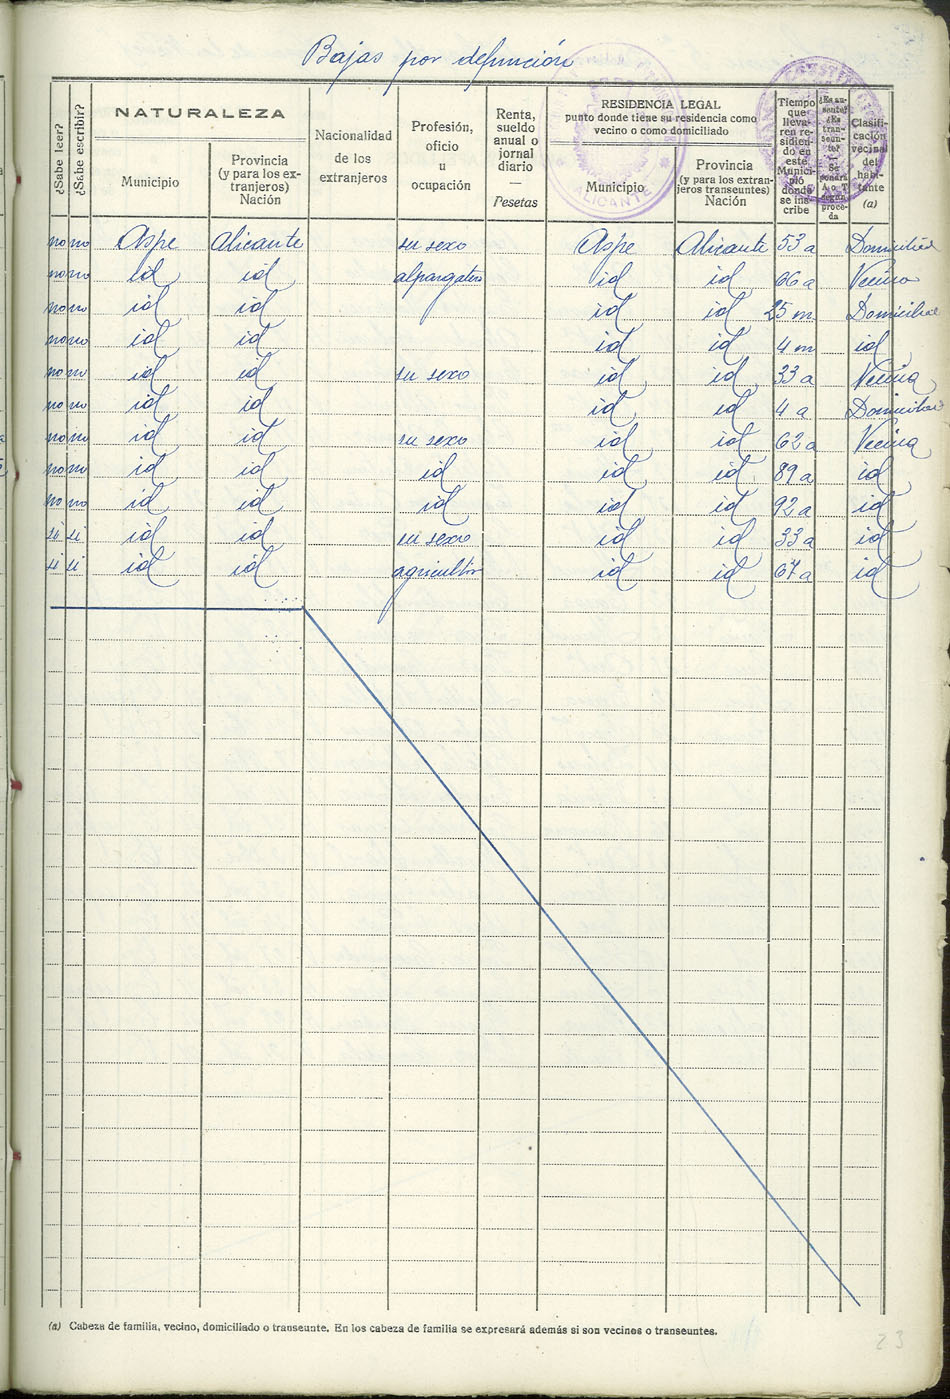 Bajas por defunción
¿Sabe leer?
¿Sabe escribir?
NATURALEZA
Municipio
Provincia
(y para los ex-
tranjeros)
Nación
Nacionalidad
de los
extranjeros
Profesión,
oficio
u
ocupación
Renta,
sueldo
anual o
jornal
diario
—
Pesetas
RESIDENCIA LEGAL
punto donde tiene su residencia como
vecino o como domiciliado
Municipio
Provincia
(y para los extran-
jeros transeuntes)
Nación
Tiempo
que
lleva-
ren re-
sidien-
do en
este
Munici-
pio
donde
se ins-
cribe
¿Es au-
sente?
¿Es
tran-
seun-
te?
—
Se
pondrá
A o T
según
proce-
da
Clasifi-
cación
vecinal
del
habi-
tante
(a)
ALICANTE
no no Aspe Alicante su sexo Aspe Alicante 53 a
no no id id alpargatero id id 66 a Vecino
no no id id id id 25 m
no no id id id id 4 m id
no no id id su sexo id id 33 a Vecina
no no id id id id 4 a
no no id id su sexo id id 62 a Vecina
no no id id id id id 89 a id
no no id id id id id 92 a id
si si id id su sexo id id 33 a id
si si id id agricultor id id 67 a id
(a) Cabeza de familia, vecino, domiciliado o transeunte. En los cabeza de familia se expresará además si son vecinos o transeuntes.
23